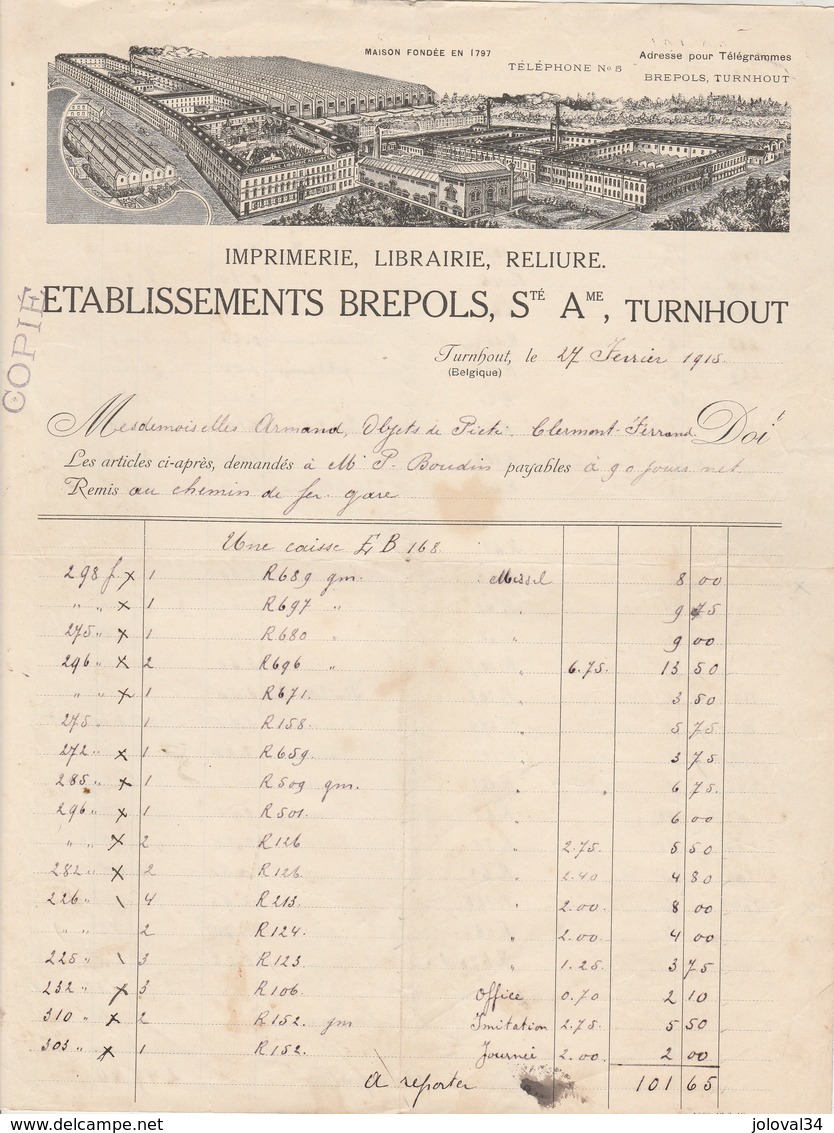 MAISON FONDÉE EN 1797
TÉLÉPHONE No 5
Adresse pour Télégrammes
BREPOLS, TURNHOUT
IMPRIMERIE, LIBRAIRIE, RELIURE.
ETABLISSEMENTS BREPOLS, STÉ AME, TURNHOUT
COPIÉ
Turnhout, le 27 Fevrier 1915
(Belgique)
Mesdemoiselles Armand, Objets de Pieté. Clermont-Ferrand. Doit
Les articles ci-après, demandés à Mr P. Boudin payables à 90 jours net.
Remis au chemin de fer gare
Une caisse E B 168.
298 f. x 1 R689 gm. Missel 8 00
" " x 1 R697 " " 9 75
275 " x 1 R680 " " 9 00
296 " x 2 R696 " " 6.75. 13 50
" " x 1 R671. " 3 50
275 " 1 R158. " 5 75
272 " x 1 R659. " 3 75
285 " x 1 R509 gm. " 6 75.
296 " x 1 R501. " 6 00
" " x 2 R126 " 2.75. 5 50
282 " x 2 R126. " 2.40 4 80
226 " \ 4 R213. " 2.00. 8 00
" " 2 R124. " 2.00. 4 00
225 " \ 3 R123 " 1.25. 3 75
232 " x 3 R106 Office 0.70 2 10
310 " x 2 R152. gm Imitation 2.75. 5 50
303 " x 1 R152. Journée 2.00. 2 00
A reporter 101 65
joloval34